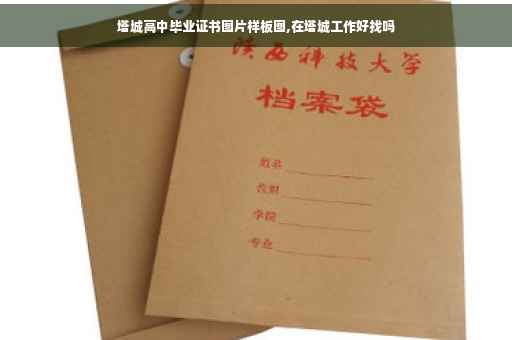 塔城高中毕业证书图片样板图,在塔城工作好找吗
陕西科技大学
档案袋
姓名
学院
专业